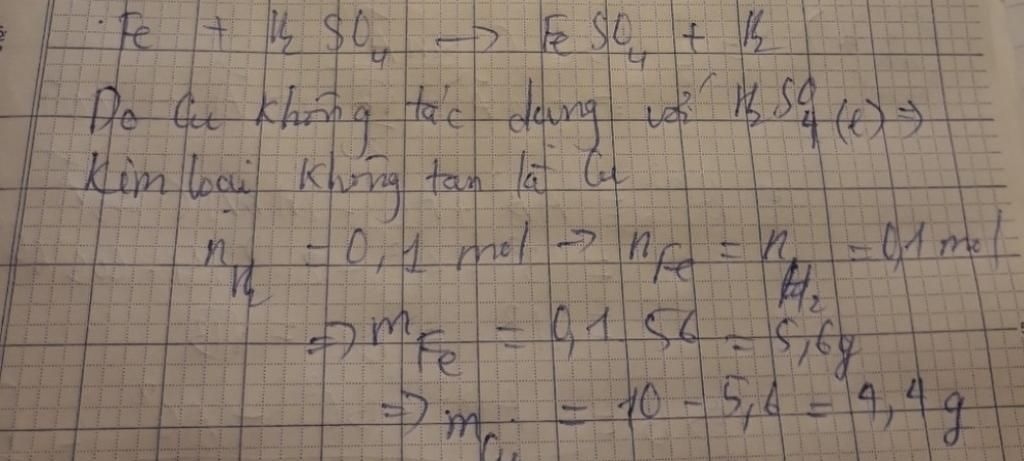 Fe + H2 SO4 → FeSO4 + H2
Do Cu không tác dụng với H2SO4 (l) ⇒
Kim loại không tan là Cu
nH2 = 0,1 mol → nFe = nH2 = 0,1 mol
⇒ mFe = 0,1 56 = 5,6g
⇒ mCu = 10 - 5,6 = 4,4 g